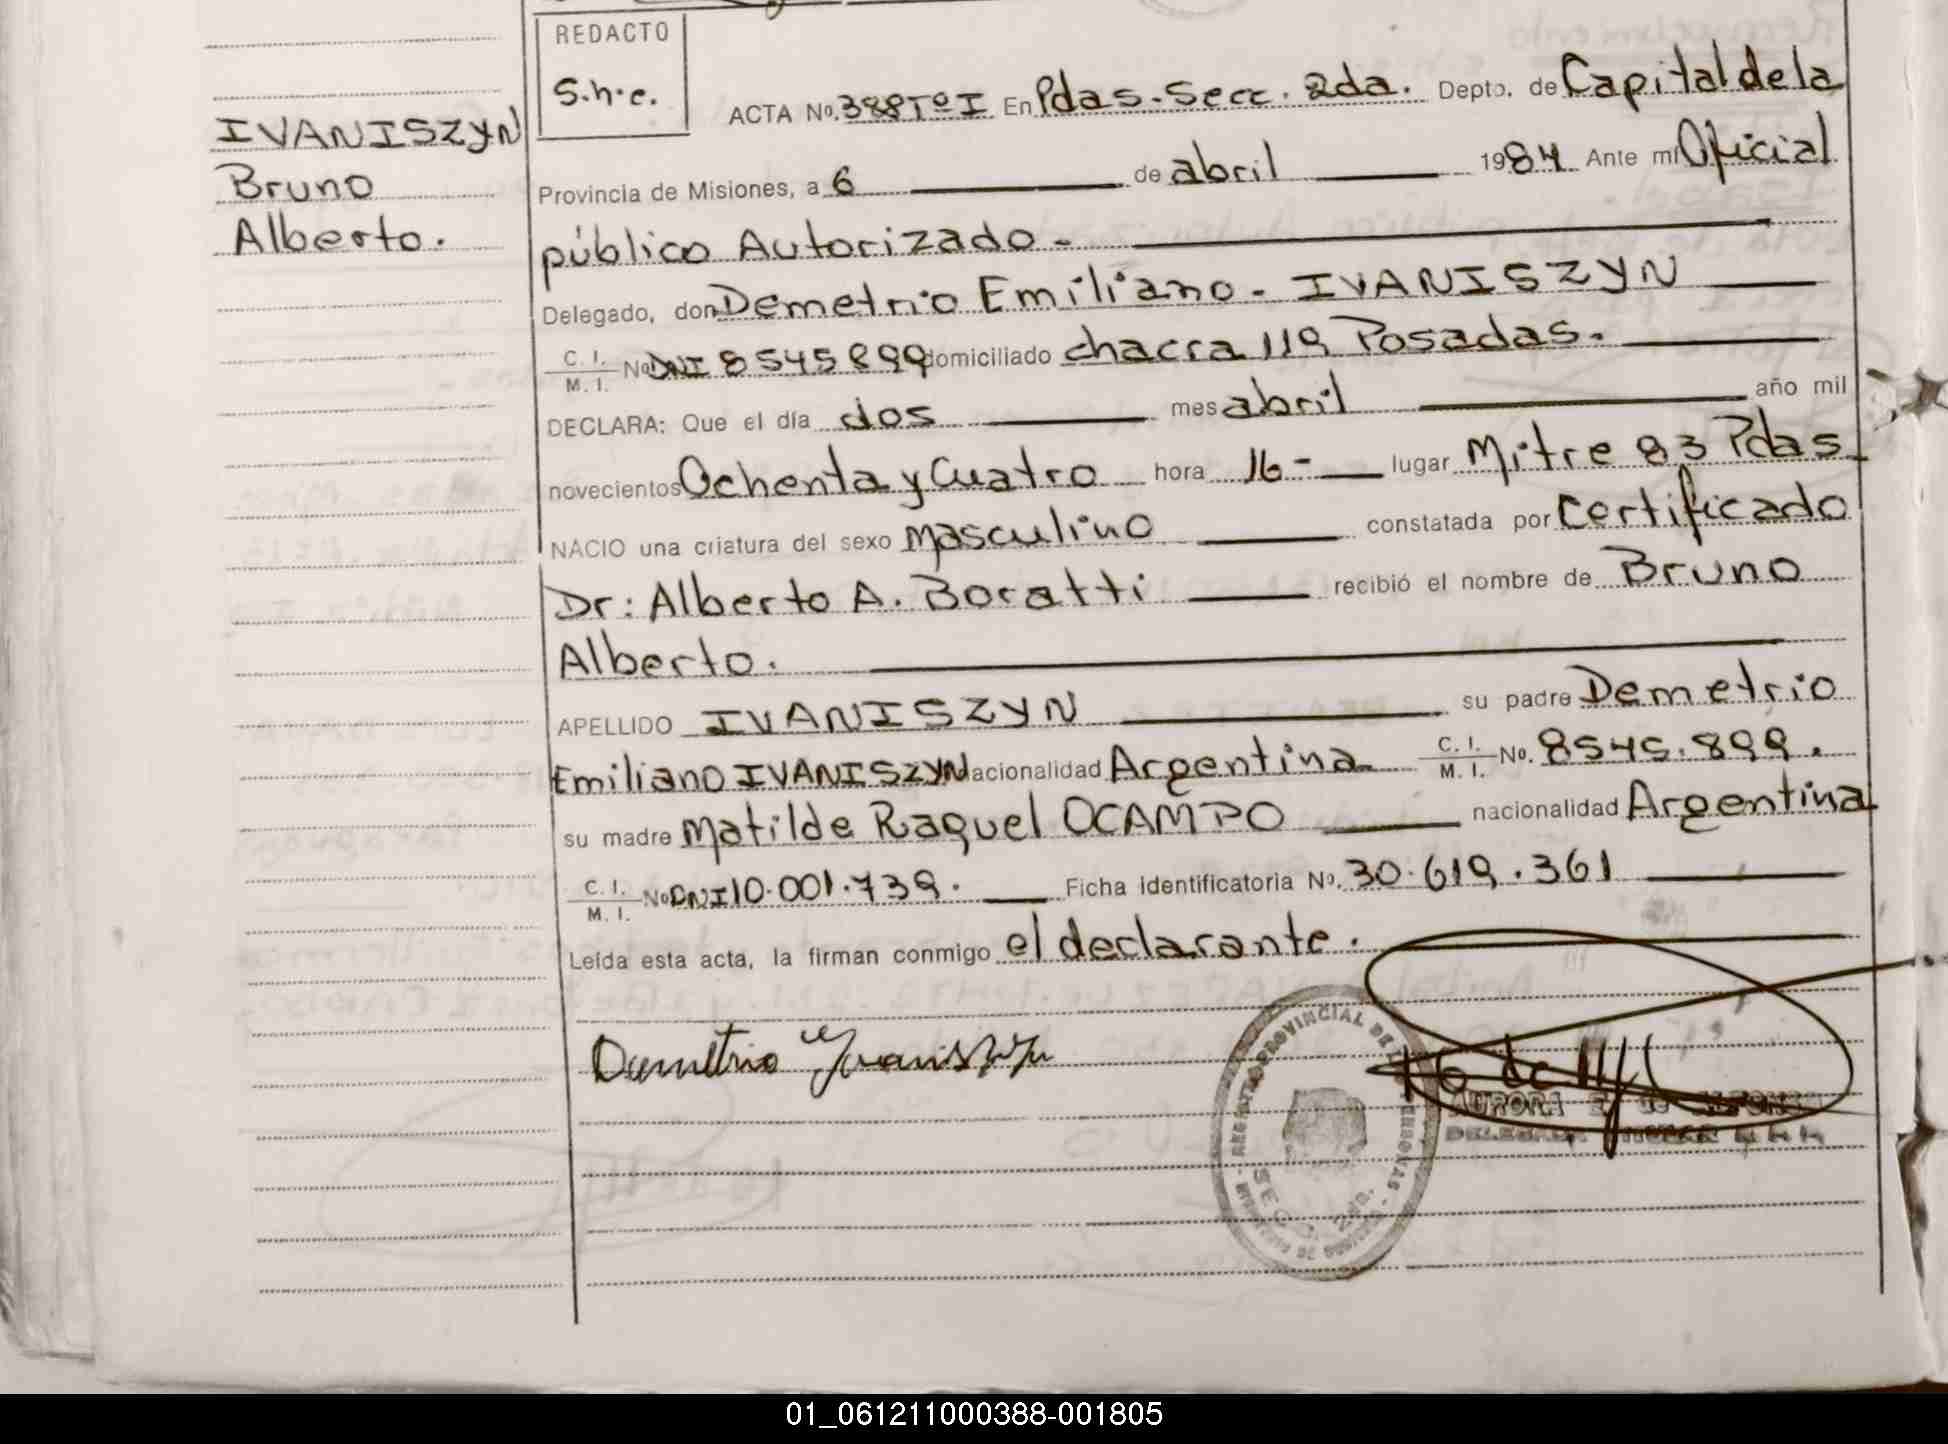 REDACTO
S.h.e.
IVANISZYN
Bruno
Alberto.
ACTA No. 388 Tº I En Pdas. Secc. 2da. Depto. de Capital de la
Provincia de Misiones, a 6 de abril 1984 Ante mí Oficial
público Autorizado.
Delegado, don Demetrio Emiliano - IVANISZYN
C. I. M. I. No DNI 8545899 domiciliado chacra 119 Posadas.
DECLARA: Que el día dos mes abril año mil
novecientos Ochenta y Cuatro hora 16- lugar Mitre 83 Pdas
NACIO una criatura del sexo masculino constatada por Certificado
Dr: Alberto A. Boratti recibió el nombre de Bruno
Alberto.
APELLIDO IVANISZYN su padre Demetrio
Emiliano IVANISZYN nacionalidad Argentina C. I. M. I. No. 8545.899.
su madre Matilde Raquel OCAMPO nacionalidad Argentina
C. I. M. I. No DNI 10.001.739. Ficha Identificatoria Nº. 30.619.361
Leída esta acta, la firman conmigo el declarante.
Demetrio Ivaniszyn
REGISTRO PROVINCIAL DE LAS PERSONAS
SECC. 2da.
AURORA
DELEGADA
01_061211000388-001805